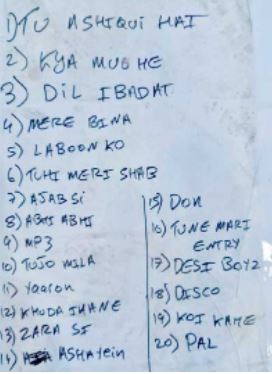 1) TU ASHIQUI HAI
2) KYA MUGHE
3) DIL IBADAT
4) MERE BINA
5) LABOON KO
6) TUHI MERI SHAB
7) AJAB SI
8) ABHI ABHI
9) MP3
10) TUJO MILA
11) Yaaron
12) KHUDA JHANE
13) ZARA SI
14) ASHAYein
15) DON
16) TUNE MARI
ENTRY
17) DESI BOYZ
18) DISCO
19) KOI KAHE
20) PAL